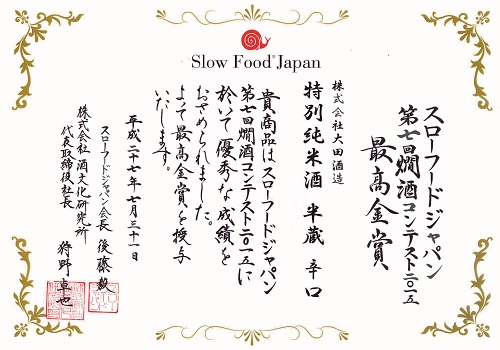 Slow Food® Japan
スローフードジャパン
第七回燗酒コンテスト二〇一五
最高金賞
株式会社大田酒造
特別純米酒 半蔵 辛口
貴商品はスローフードジャパン
第七回燗酒コンテスト二〇一五に
於いて優秀な成績を
おさめられました。
よって最高金賞を授与
いたします。
平成二十七年七月三十一日
スローフードジャパン会長 後藤毅
株式会社酒文化研究所
代表取締役社長 狩野卓也